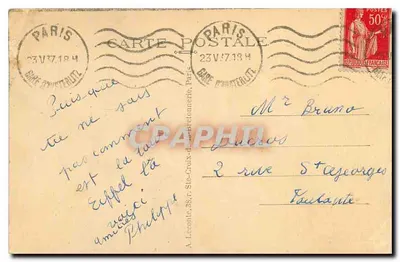 PARIS
23 V 37. 18 H
GARE D'AUSTERLITZ
CARTE POSTALE
PARIS
23 V 37. 18 H
GARE D'AUSTERLITZ
POSTES
50c
Puisque
tu ne sais
pas comment
est la tour
Eiffel la
voici
amitiés
Philippe
A. Leconte, 38, r. Ste-Croix-de-la-Bretonnerie, Paris
CPARAMA
Mr Bruno
Ducros
2 rue St Georges